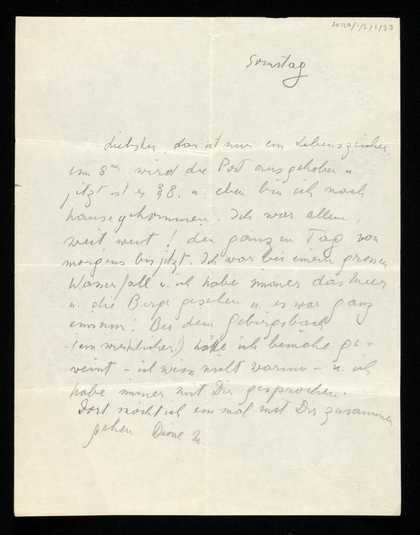 Sonntag
Liebster, das ist nur ein Lebenszeichen,
um 8 wird die Post ausgehoben u.
jetzt ist es 8. u. eben bin ich nach
hause gekommen. Ich war allein,
weit weit! den ganzen Tag von
morgens bis jetzt. Ich war bei einem grossen
Wasserfall u. ich habe immer das Meer
u. die Berge gesehen u. es war ganz
einsam. Bei dem Gebirgsbach
(ein wirklicher!) hätte ich beinahe ge-
weint – ich weiss nicht warum – u. ich
habe immer mit Dir gesprochen.
Dort möcht ich einmal mit Dir zusammen
gehen